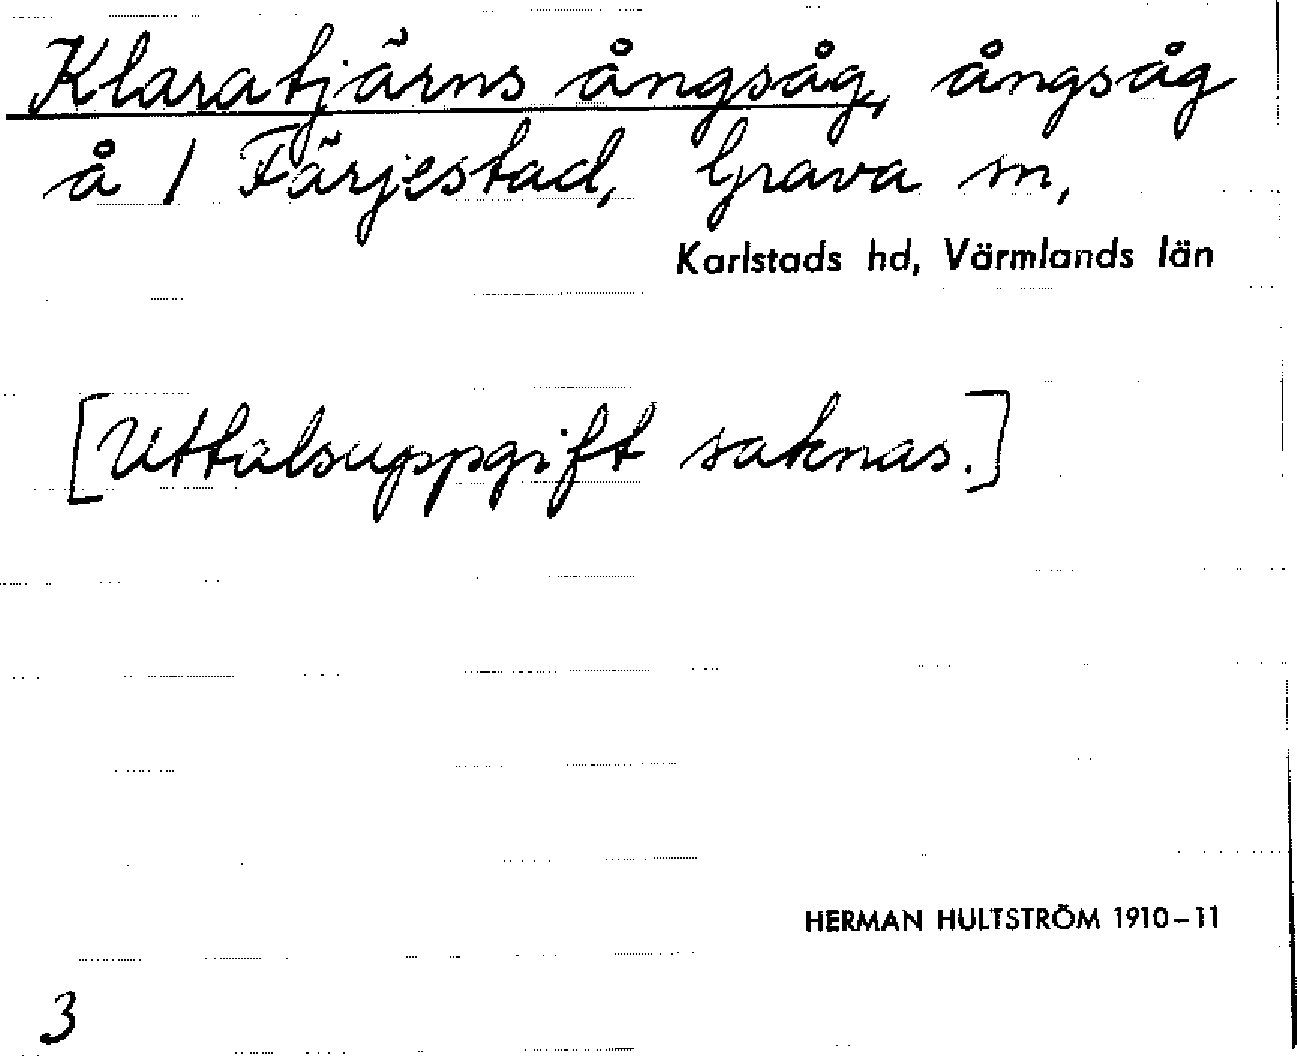 Klaratjärns ångsåg, ångsåg
å 1 Färjestad, Grava sn,
Karlstads hd, Värmlands län
[Uttalsuppgift saknas.]
HERMAN HULTSTRÖM 1910–11
3